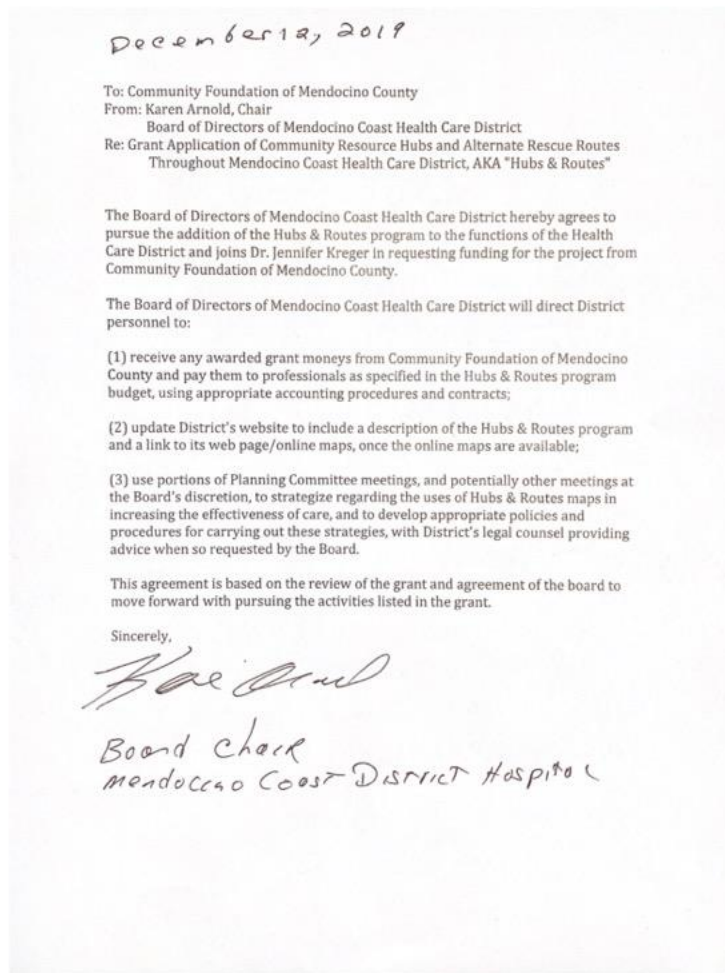 December 12, 2019
To: Community Foundation of Mendocino County
From: Karen Arnold, Chair
Board of Directors of Mendocino Coast Health Care District
Re: Grant Application of Community Resource Hubs and Alternate Rescue Routes
Throughout Mendocino Coast Health Care District, AKA "Hubs & Routes"
The Board of Directors of Mendocino Coast Health Care District hereby agrees to
pursue the addition of the Hubs & Routes program to the functions of the Health
Care District and joins Dr. Jennifer Kreger in requesting funding for the project from
Community Foundation of Mendocino County.
The Board of Directors of Mendocino Coast Health Care District will direct District
personnel to:
(1) receive any awarded grant moneys from Community Foundation of Mendocino
County and pay them to professionals as specified in the Hubs & Routes program
budget, using appropriate accounting procedures and contracts;
(2) update District's website to include a description of the Hubs & Routes program
and a link to its web page/online maps, once the online maps are available;
(3) use portions of Planning Committee meetings, and potentially other meetings at
the Board's discretion, to strategize regarding the uses of Hubs & Routes maps in
increasing the effectiveness of care, and to develop appropriate policies and
procedures for carrying out these strategies, with District's legal counsel providing
advice when so requested by the Board.
This agreement is based on the review of the grant and agreement of the board to
move forward with pursuing the activities listed in the grant.
Sincerely,
Board Chair
Mendocino Coast District Hospital